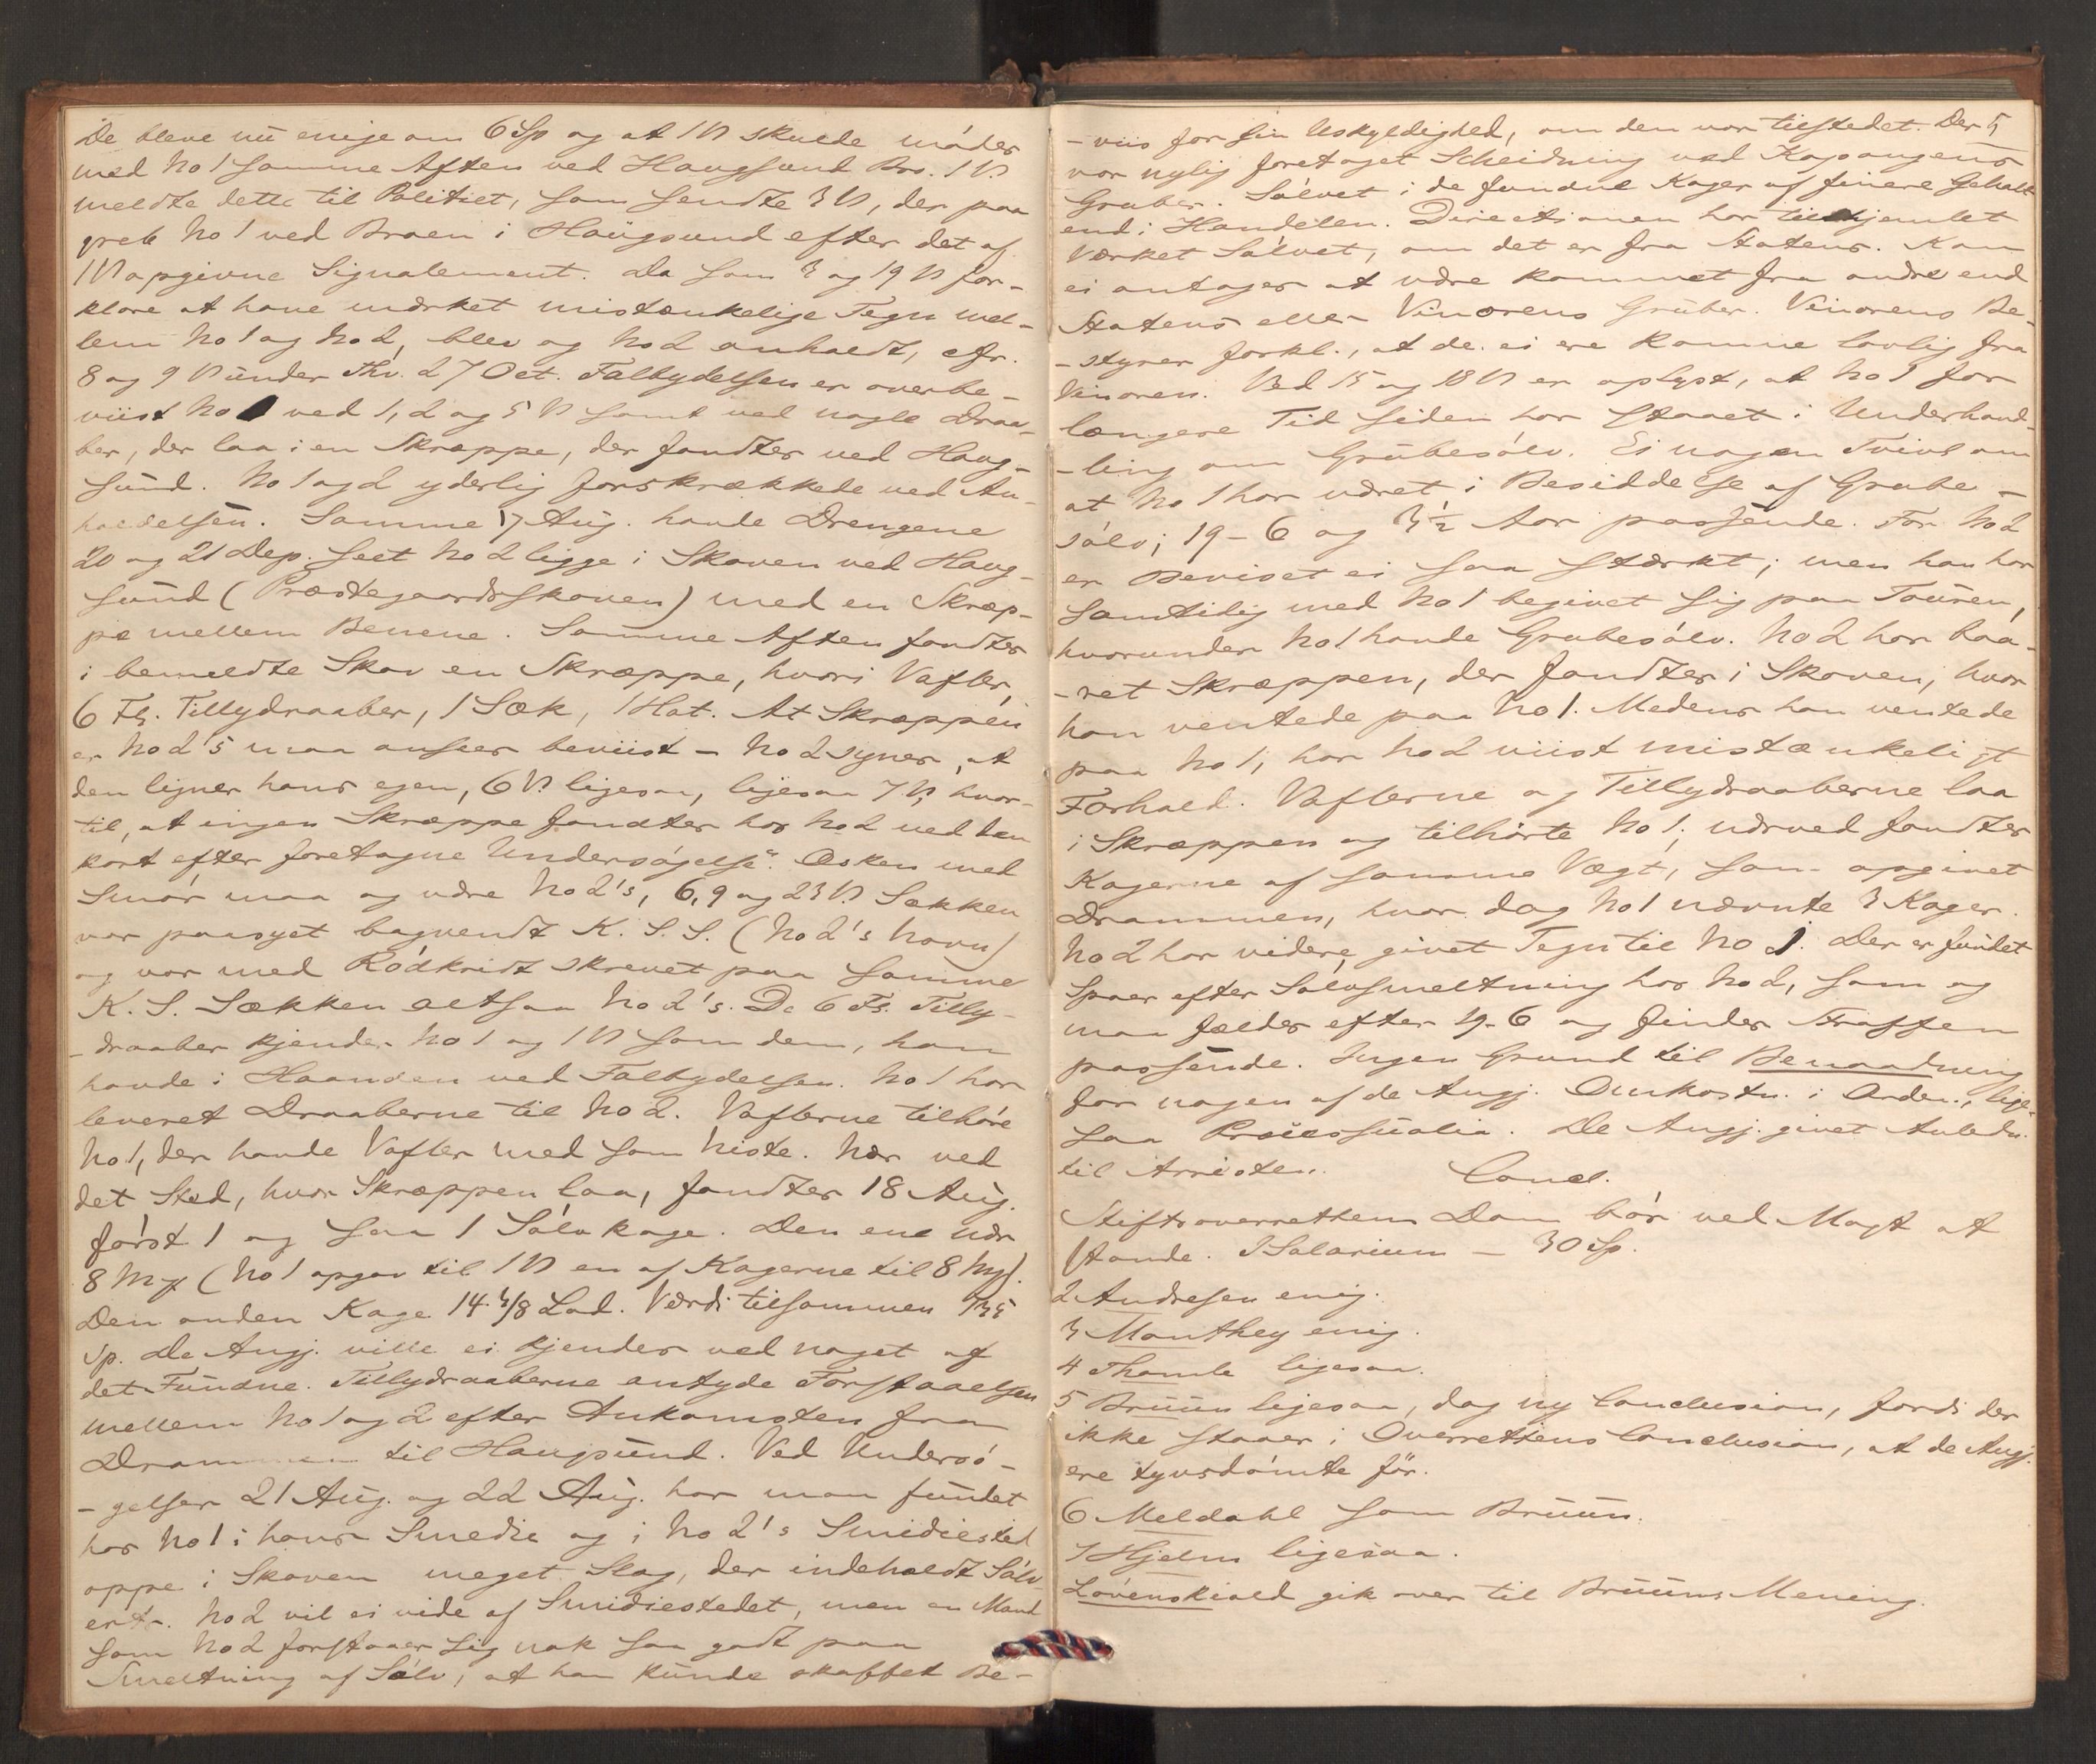 De bleve nu enige om 6 Sp og at 1 V skulde mødes
med No 1 samme Aften ved Haugsund Bro. 1 V.
meldte dette til Politiet, som sendte 3 V, der paa
greb No 1 ved Broen i Haugsund efter det af
1 V opgivne Signalement. Da som 3 og 19 V for-
klare at have mærket mistænkelige Tegn mel-
lem No 1 og No 2, blev og No 2 anholdt, cfr.
8 og 9 V under Thv. 27 Oct. Falbydelsen er overbe-
viist No 1 ved 1, 2 og 5 V samt ved nogle Draa-
ber, der laa i en Skræppe, der fandtes ved Haug-
sund. No 1 og 2 yderlig forskrækkede ved An-
holdelsen. Samme 17 Aug. havde Drengene
20 og 21 Dep. seet No 2 ligge i Skoven ved Haug-
sund (Præstegaardsskoven) med en Skræp-
pe mellem Benene. Samme Aften fandtes
i bemeldte Skov en Skræppe, hvori Vafler,
6 Fl. Tillydraaber, 1 Sæk, 1 Hat. At Skræppen
er No 2's maa ansees beviist – No 2 synes, at
den ligner hans egen, 6 V. ligesaa, ligesaa 7 V, hvor-
til, at ingen Skræppe fandtes hos No 2 ved den
kort efter foretagne Undersøgelse. Æsken med
Smør maa og være No 2's, 6, 9 og 23 V. Sækken
var paasyet bagvendt K. S. S. (No 2's Navn)
og var med Rødkridt skrevet paa samme
K. S. Sækken altsaa No 2's. De 6 Fl. Tilly-
-draaber kjender No 1 og 1 V som dem, han
havde i Haanden ved Falbydelsen. No 1 har
leveret Draaberne til No 2. Vaflerne tilhøre
No 1, der havde Vafler med som Niste. Nær ved
det Sted, hvor Skræppen laa, fandtes 18 Aug.
først 1 og saa 1 Sølvkage. Den ene var
8 Mk (No 1 opgav til 1 V en af Kagerne til 8 Mk).
Den anden Kage 14 3/8 Lod. Værdi tilsammen
Sp. De Angj. ville ei kjendes ved noget af
det Fundne. Tillydraaberne antyde Forstaaelsen
mellem No 1 og 2 efter Ankomsten fra
Drammen til Haugsund. Ved Undersø-
-gelser 21 Aug. og 22 Aug. har man fundet
hos No 1 i hans Smedie og i No 2's Smidiested
oppe i Skoven meget Slag, der indeholdt Sølv-
erts. No 2 vil ei vide af Smidiestedet, men en Mand
som No 2 forstaaer sig nok saa godt paa
Smeltning af Sølv, at han kunde skaffet Be-
-viis for sin Uskyldighed, om den var tilstedet. Der
var nylig foretaget Scheidning ved Kapangens
Gruber. Sølvet i de fundne Kager af finere Gehalt
end i Handelen. Directionen har tilkjendet
Værket Sølvet, om det er fra Statens. Kan
ei antages at være kommet fra andre end
Statens eller Vinorens Gruber. Vinorens Be-
-styrer forkl., at de ei ere komne lovlig fra
Vinoren. Ved 15 og 18 V er oplyst, at No 1 for
længere Tid siden har staaet i Underhand-
-ling om Grubesølv. Ei nogen Tvivl om
at No 1 har været i Besiddelse af Grube-
sølv; 19-6 og 3½ Aar passende. For No 2
er Beviset ei saa stærkt; men han har
samtidig med No 1 begivet sig paa Touren,
hvorunder No 1 havde Grubesølv. No 2 har baa-
-ret Skræppen, der fandtes i Skoven, hvor
han ventede paa No 1. Medens han ventede
paa No 1, har No 2 viist mistænkeligt
Forhold. Vaflerne og Tillydraaberne laa
i Skræppen og tilhørte No 1; nærved fandtes
Kagerne af samme Vægt, som opgivet
Drammen, hvor dog No 1 nævnte 3 Kager.
No 2 har videre givet Tegn til No 1. Der er fundet
Spor efter Sølvsmeltning hos No 2, som og
maa fældes efter 19-6 og finder Straffen
passende. Ingen Grund til Benaadning
for nogen af de Angj. Omkostn. i Orden, lige-
saa Processualia. De Angj. givet Anledn.
til Arresten. Concl.
Stiftsoverrettens Dom bør ved Magt at
stande. I Salarium – 30 Sp.
2 Andresen enig.
3 Manthey enig.
4 Thomle ligesaa.
5 Bruun ligesaa, dog ny Conclusion, fordi der
ikke staaer i Overrettens Conclusion, at de Angj.
ere tyvsdømte før.
6 Meldahl som Bruun.
7 Hjelm ligesaa.
Løvenskiold gik over til Bruuns Mening.